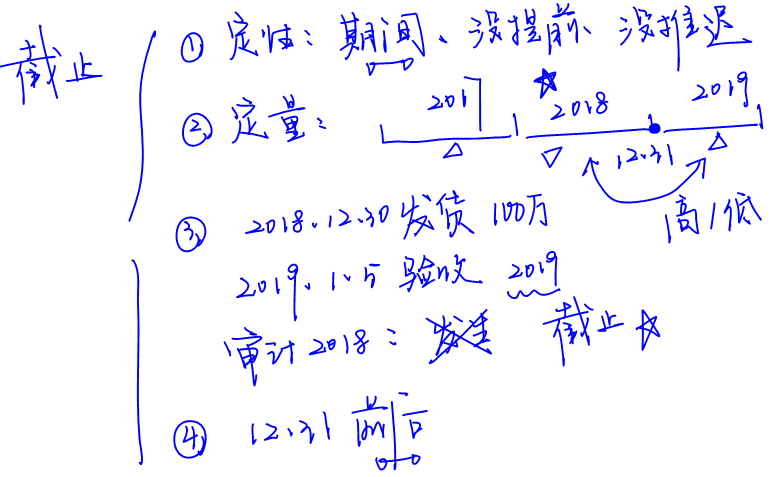 截止
① 定性：期间、没提前、没推迟
② 定量：2017 2018 2019
12.31
高/低
③ 2018.12.30 发货 100万
2019.1.5 验收 2019
审计2018：发生 截止
④ 12.31 前后